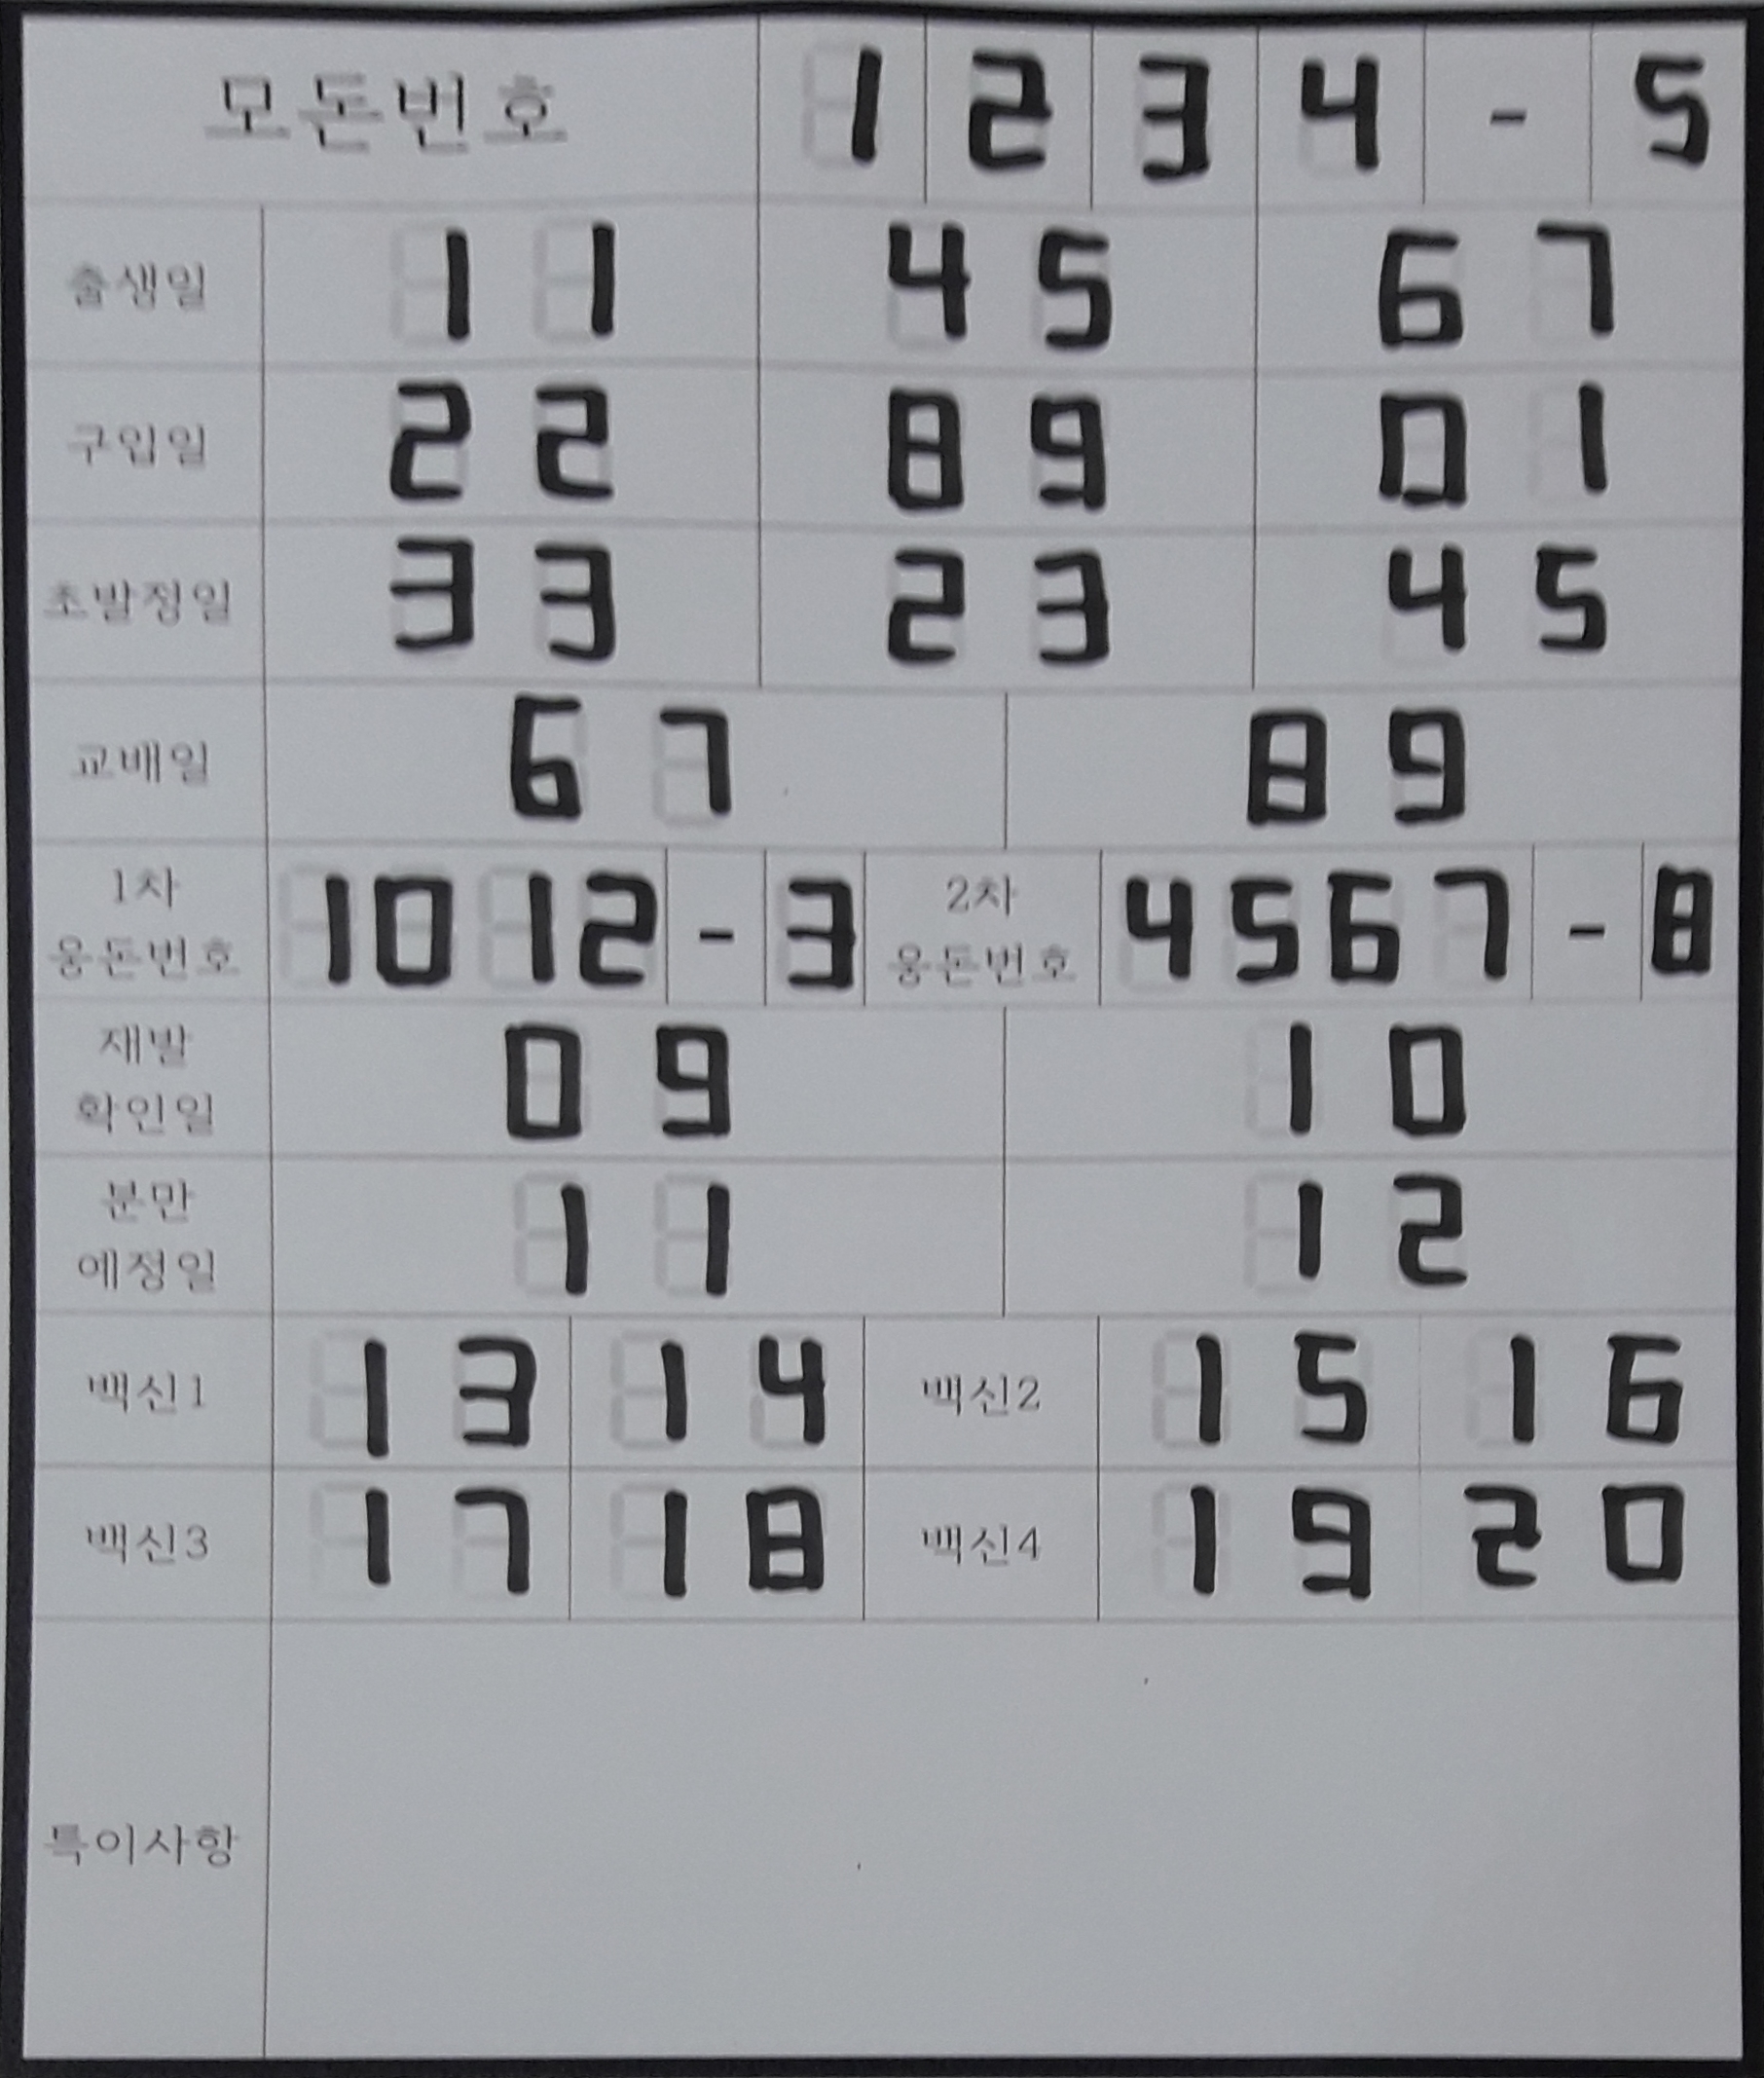 모돈번호 1 2 3 4 - 5
출생일 1 1 4 5 6 7
구입일 2 2 8 9 0 1
초발정일 3 3 2 3 4 5
교배일 6 7 8 9
1차
웅돈번호 1 0 1 2 - 3
2차
웅돈번호 4 5 6 7 - 8
재발
확인일 0 9 1 0
분만
예정일 1 1 1 2
백신1 1 3 1 4 백신2 1 5 1 6
백신3 1 7 1 8 백신4 1 9 2 0
특이사항